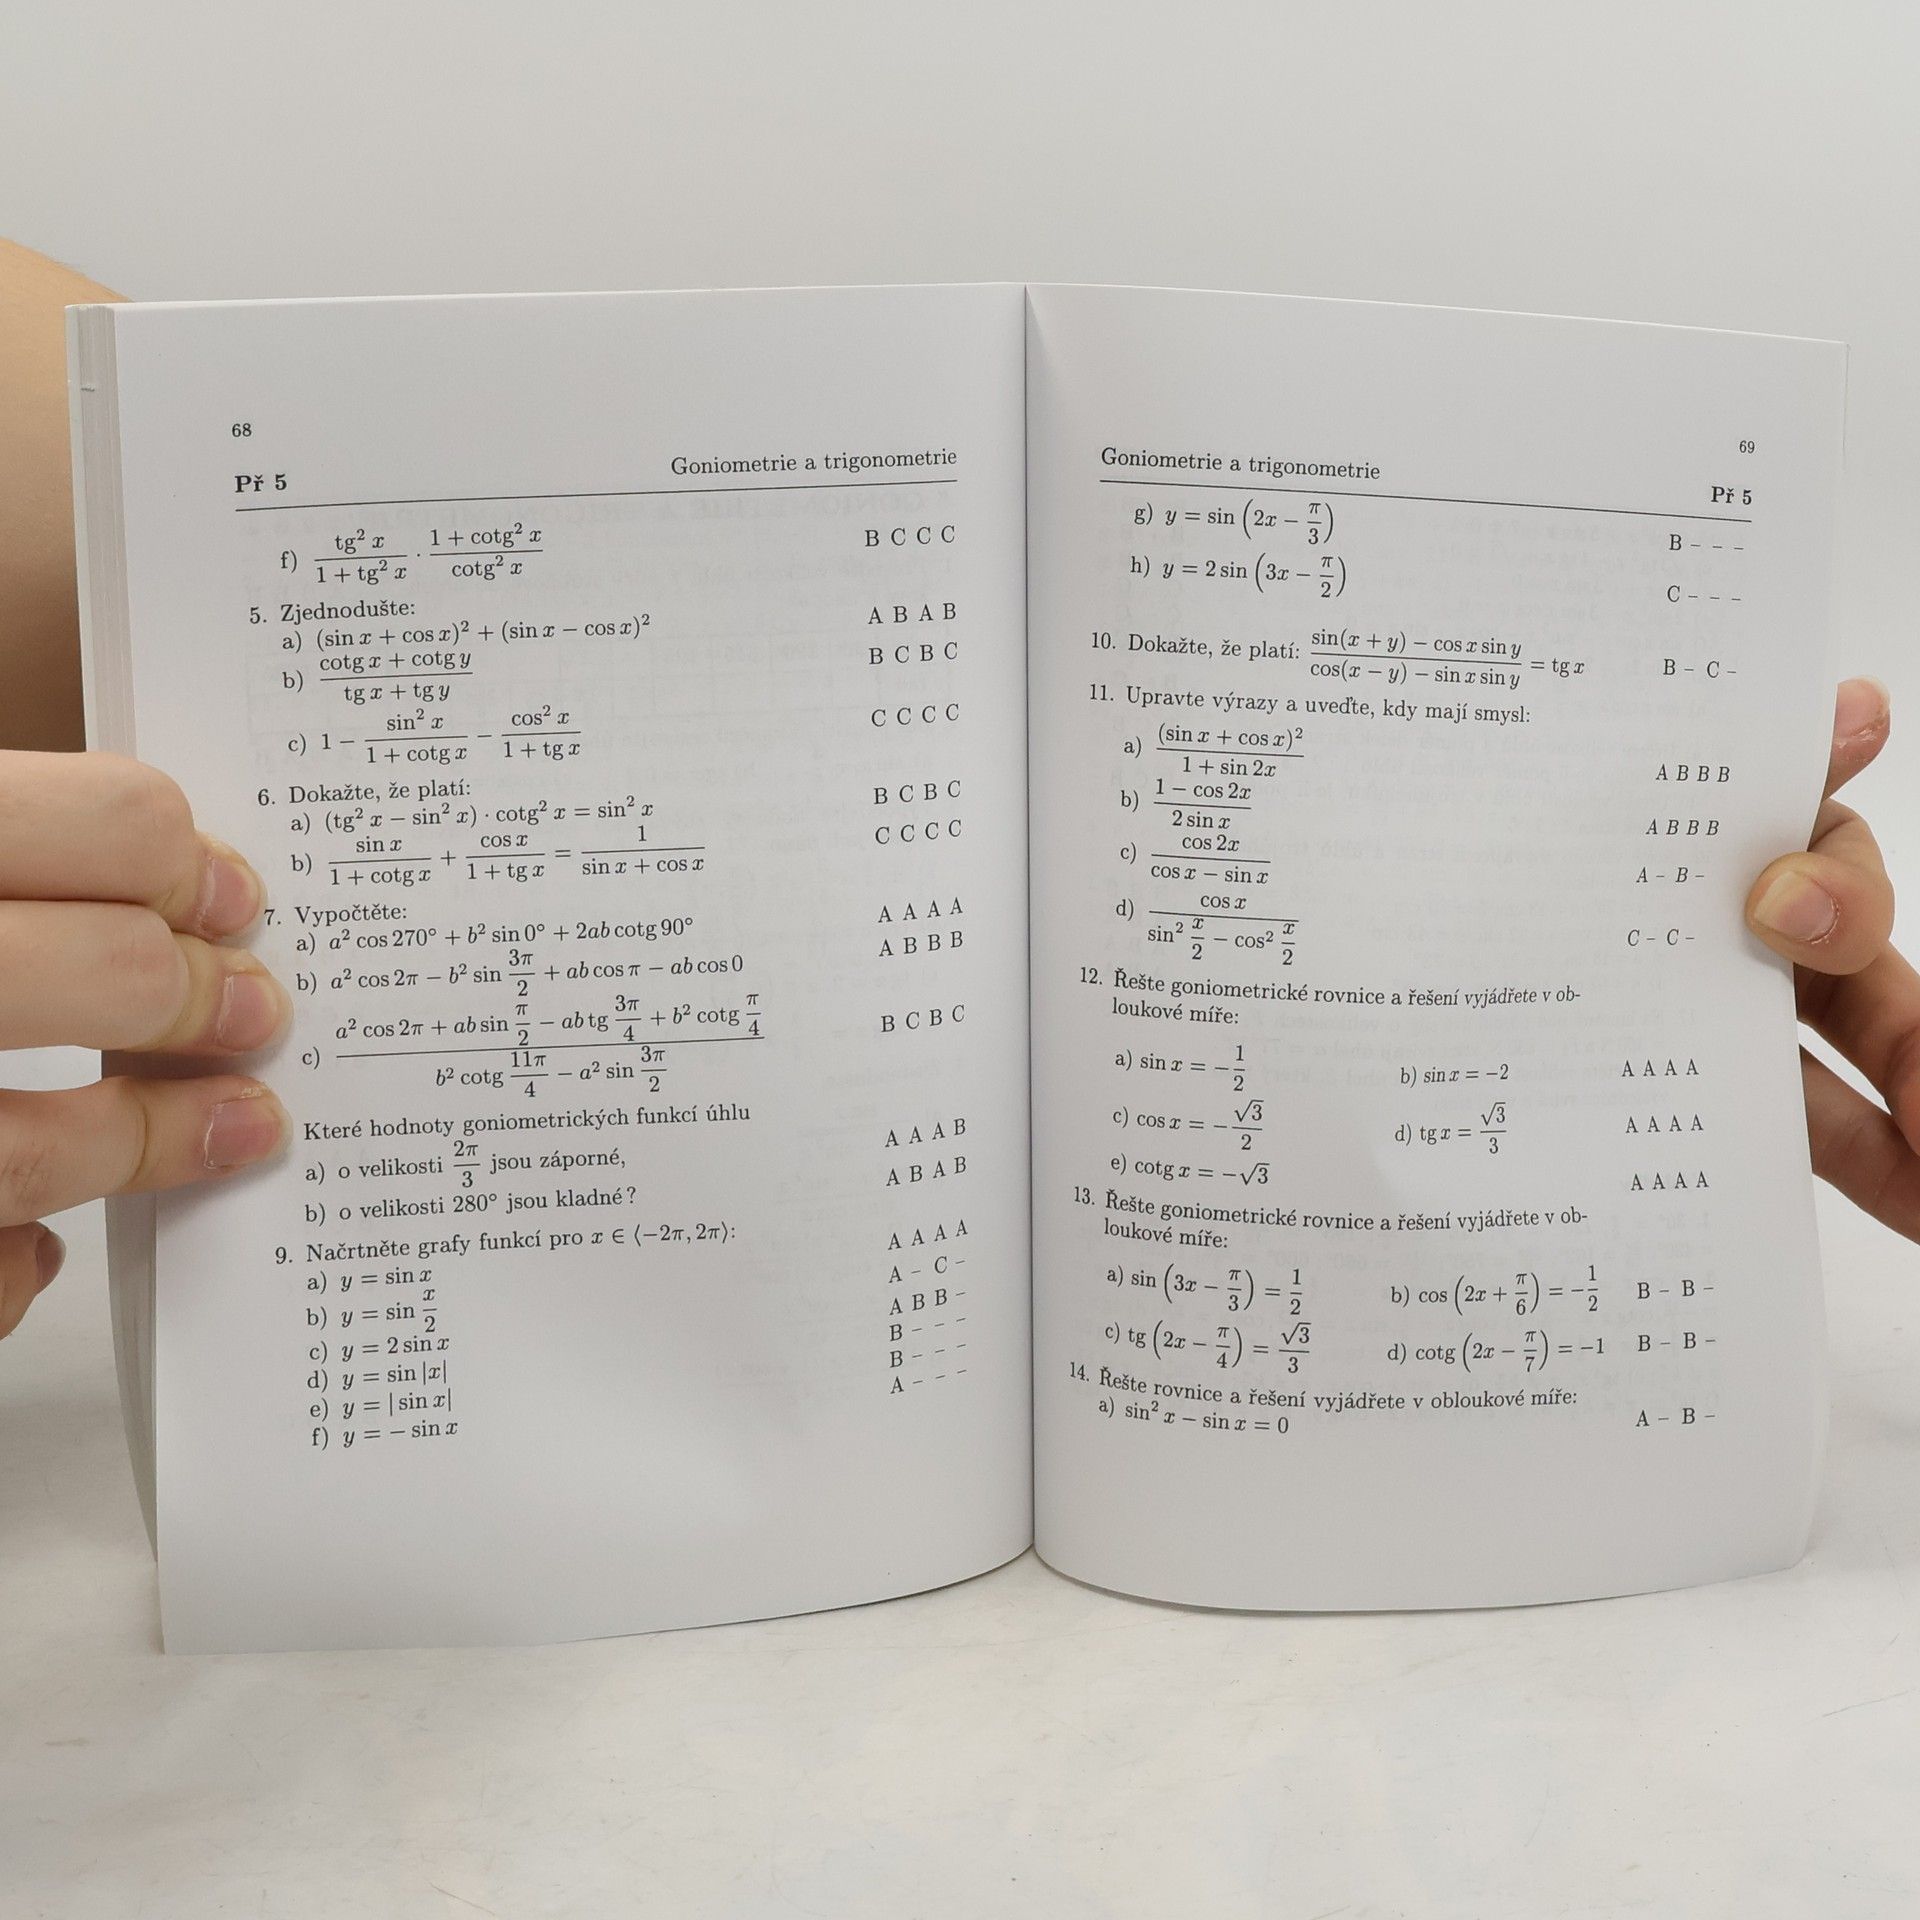 68
Př 5 Goniometrie a trigonometrie
f) tg² x / (1 + tg² x) · (1 + cotg² x) / cotg² x B C C C
5. Zjednodušte:
a) (sin x + cos x)² + (sin x − cos x)² A B A B
b) (cotg x + cotg y) / (tg x + tg y) B C B C
c) 1 − sin² x / (1 + cotg x) − cos² x / (1 + tg x) C C C C
6. Dokažte, že platí:
a) (tg² x − sin² x) · cotg² x = sin² x B C B C
b) sin x / (1 + cotg x) + cos x / (1 + tg x) = 1 / (sin x + cos x) C C C C
7. Vypočtěte:
a) a² cos 270° + b² sin 0° + 2ab cotg 90° A A A A
b) a² cos 2π − b² sin 3π/2 + ab cos π − ab cos 0 A B B B
c) (a² cos 2π + ab sin π/2 − ab tg 3π/4 + b² cotg π/4) / (b² cotg 11π/4 − a² sin 3π/2) B C B C
Které hodnoty goniometrických funkcí úhlu
a) o velikosti 2π/3 jsou záporné, A A A B
b) o velikosti 280° jsou kladné? A B A B
9. Načrtněte grafy funkcí pro x ∈ ⟨−2π, 2π⟩:
a) y = sin x A A A A
b) y = sin x/2 A – C –
c) y = 2 sin x A B B –
d) y = sin |x| B – – –
e) y = | sin x| B – – –
f) y = − sin x A – – –
69
Goniometrie a trigonometrie Př 5
g) y = sin (2x − π/3) B – – –
h) y = 2 sin (3x − π/2) C – – –
10. Dokažte, že platí: (sin(x + y) − cos x sin y) / (cos(x − y) − sin x sin y) = tg x B – C –
11. Upravte výrazy a uveďte, kdy mají smysl:
a) (sin x + cos x)² / (1 + sin 2x) A B B B
b) (1 − cos 2x) / (2 sin x) A B B B
c) cos 2x / (cos x − sin x) A – B –
d) cos x / (sin² x/2 − cos² x/2) C – C –
12. Řešte goniometrické rovnice a řešení vyjádřete v ob-
loukové míře:
a) sin x = −1/2 b) sin x = −2 A A A A
c) cos x = −√3/2 d) tg x = √3/3 A A A A
e) cotg x = −√3 A A A A
13. Řešte goniometrické rovnice a řešení vyjádřete v ob-
loukové míře:
a) sin (3x − π/3) = 1/2 b) cos (2x + π/6) = −1/2 B – B –
c) tg (2x − π/4) = √3/3 d) cotg (2x − π/7) = −1 B – B –
14. Řešte rovnice a řešení vyjádřete v obloukové míře:
a) sin² x − sin x = 0 A – B –